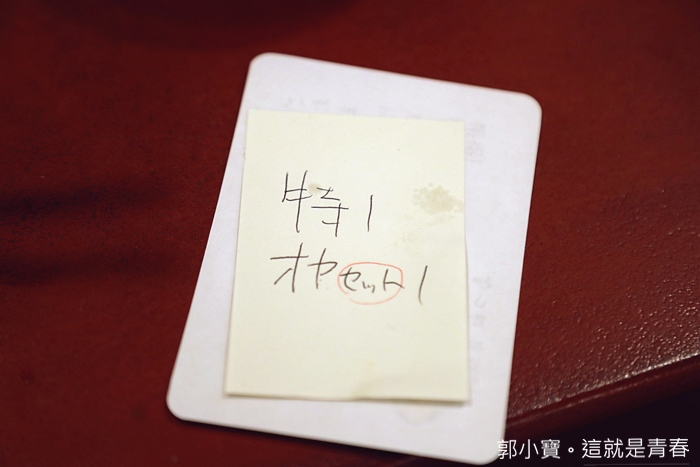 特1
オヤセット1
郭小寶。這就是青春